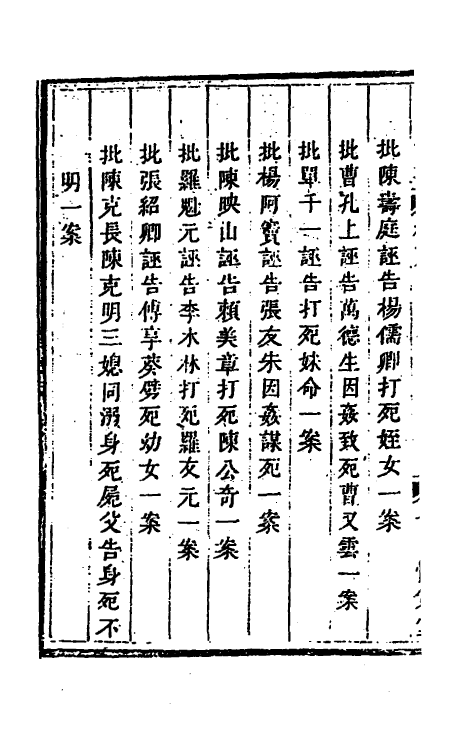 批陳壽庭誣告楊儒卿打死姪女一案
批曹孔上誣告萬德生因姦致死曹又雲一案
批單千一誣告打死妹命一案
批楊阿寶誣告張友朱因姦謀死一案
批陳映山誣告賴美章打死陳公奇一案
批羅魁元誣告李木林打死羅友元一案
批張紹卿誣告傅享葵劈死幼女一案
批陳克長陳克明三媳同溺身死屍父告身死不
明一案